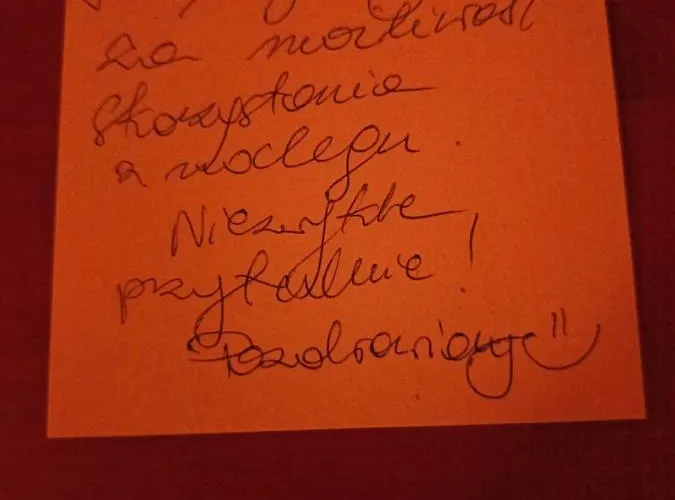 za możliwość
skorzystania
z noclegu.
Niezwykle
przytulnie!
Pozdrawiamy